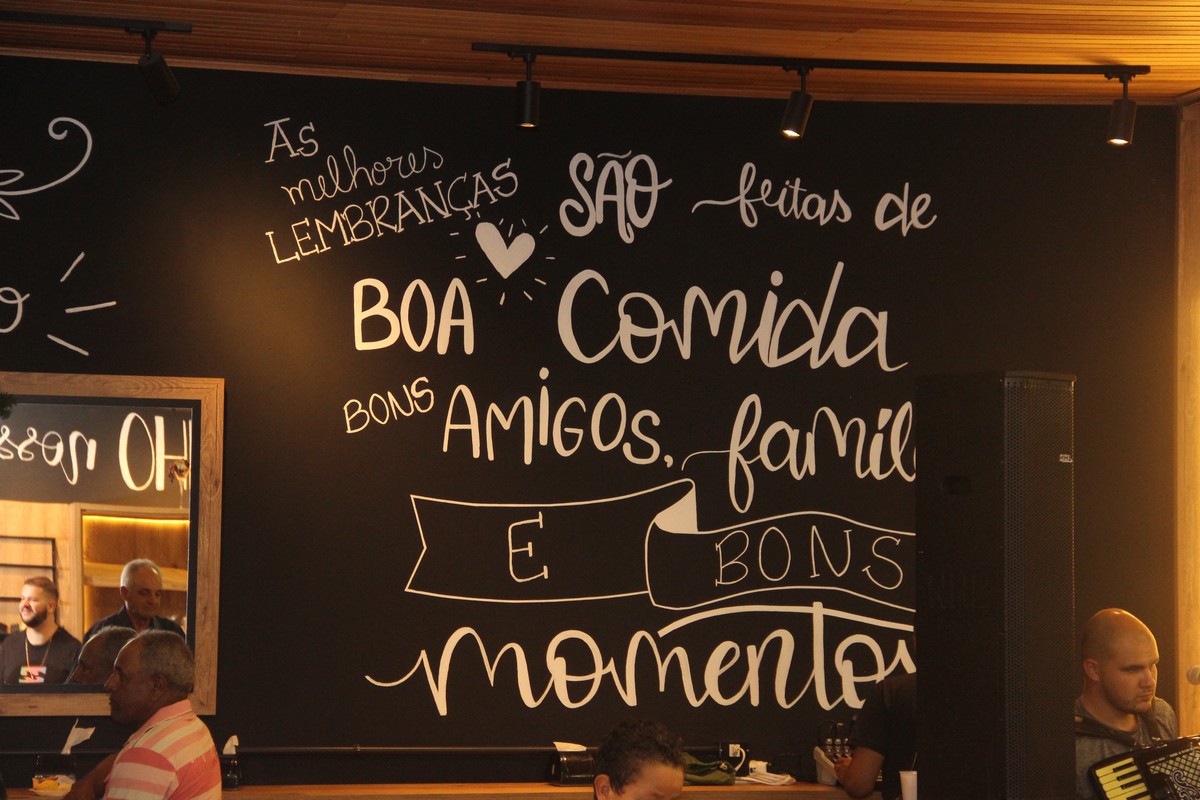 As
melhores
LEMBRANÇAS
SÃO feitas de
BOA Comida
BONS AMIGOS, famil
E BONS
momentos
OH